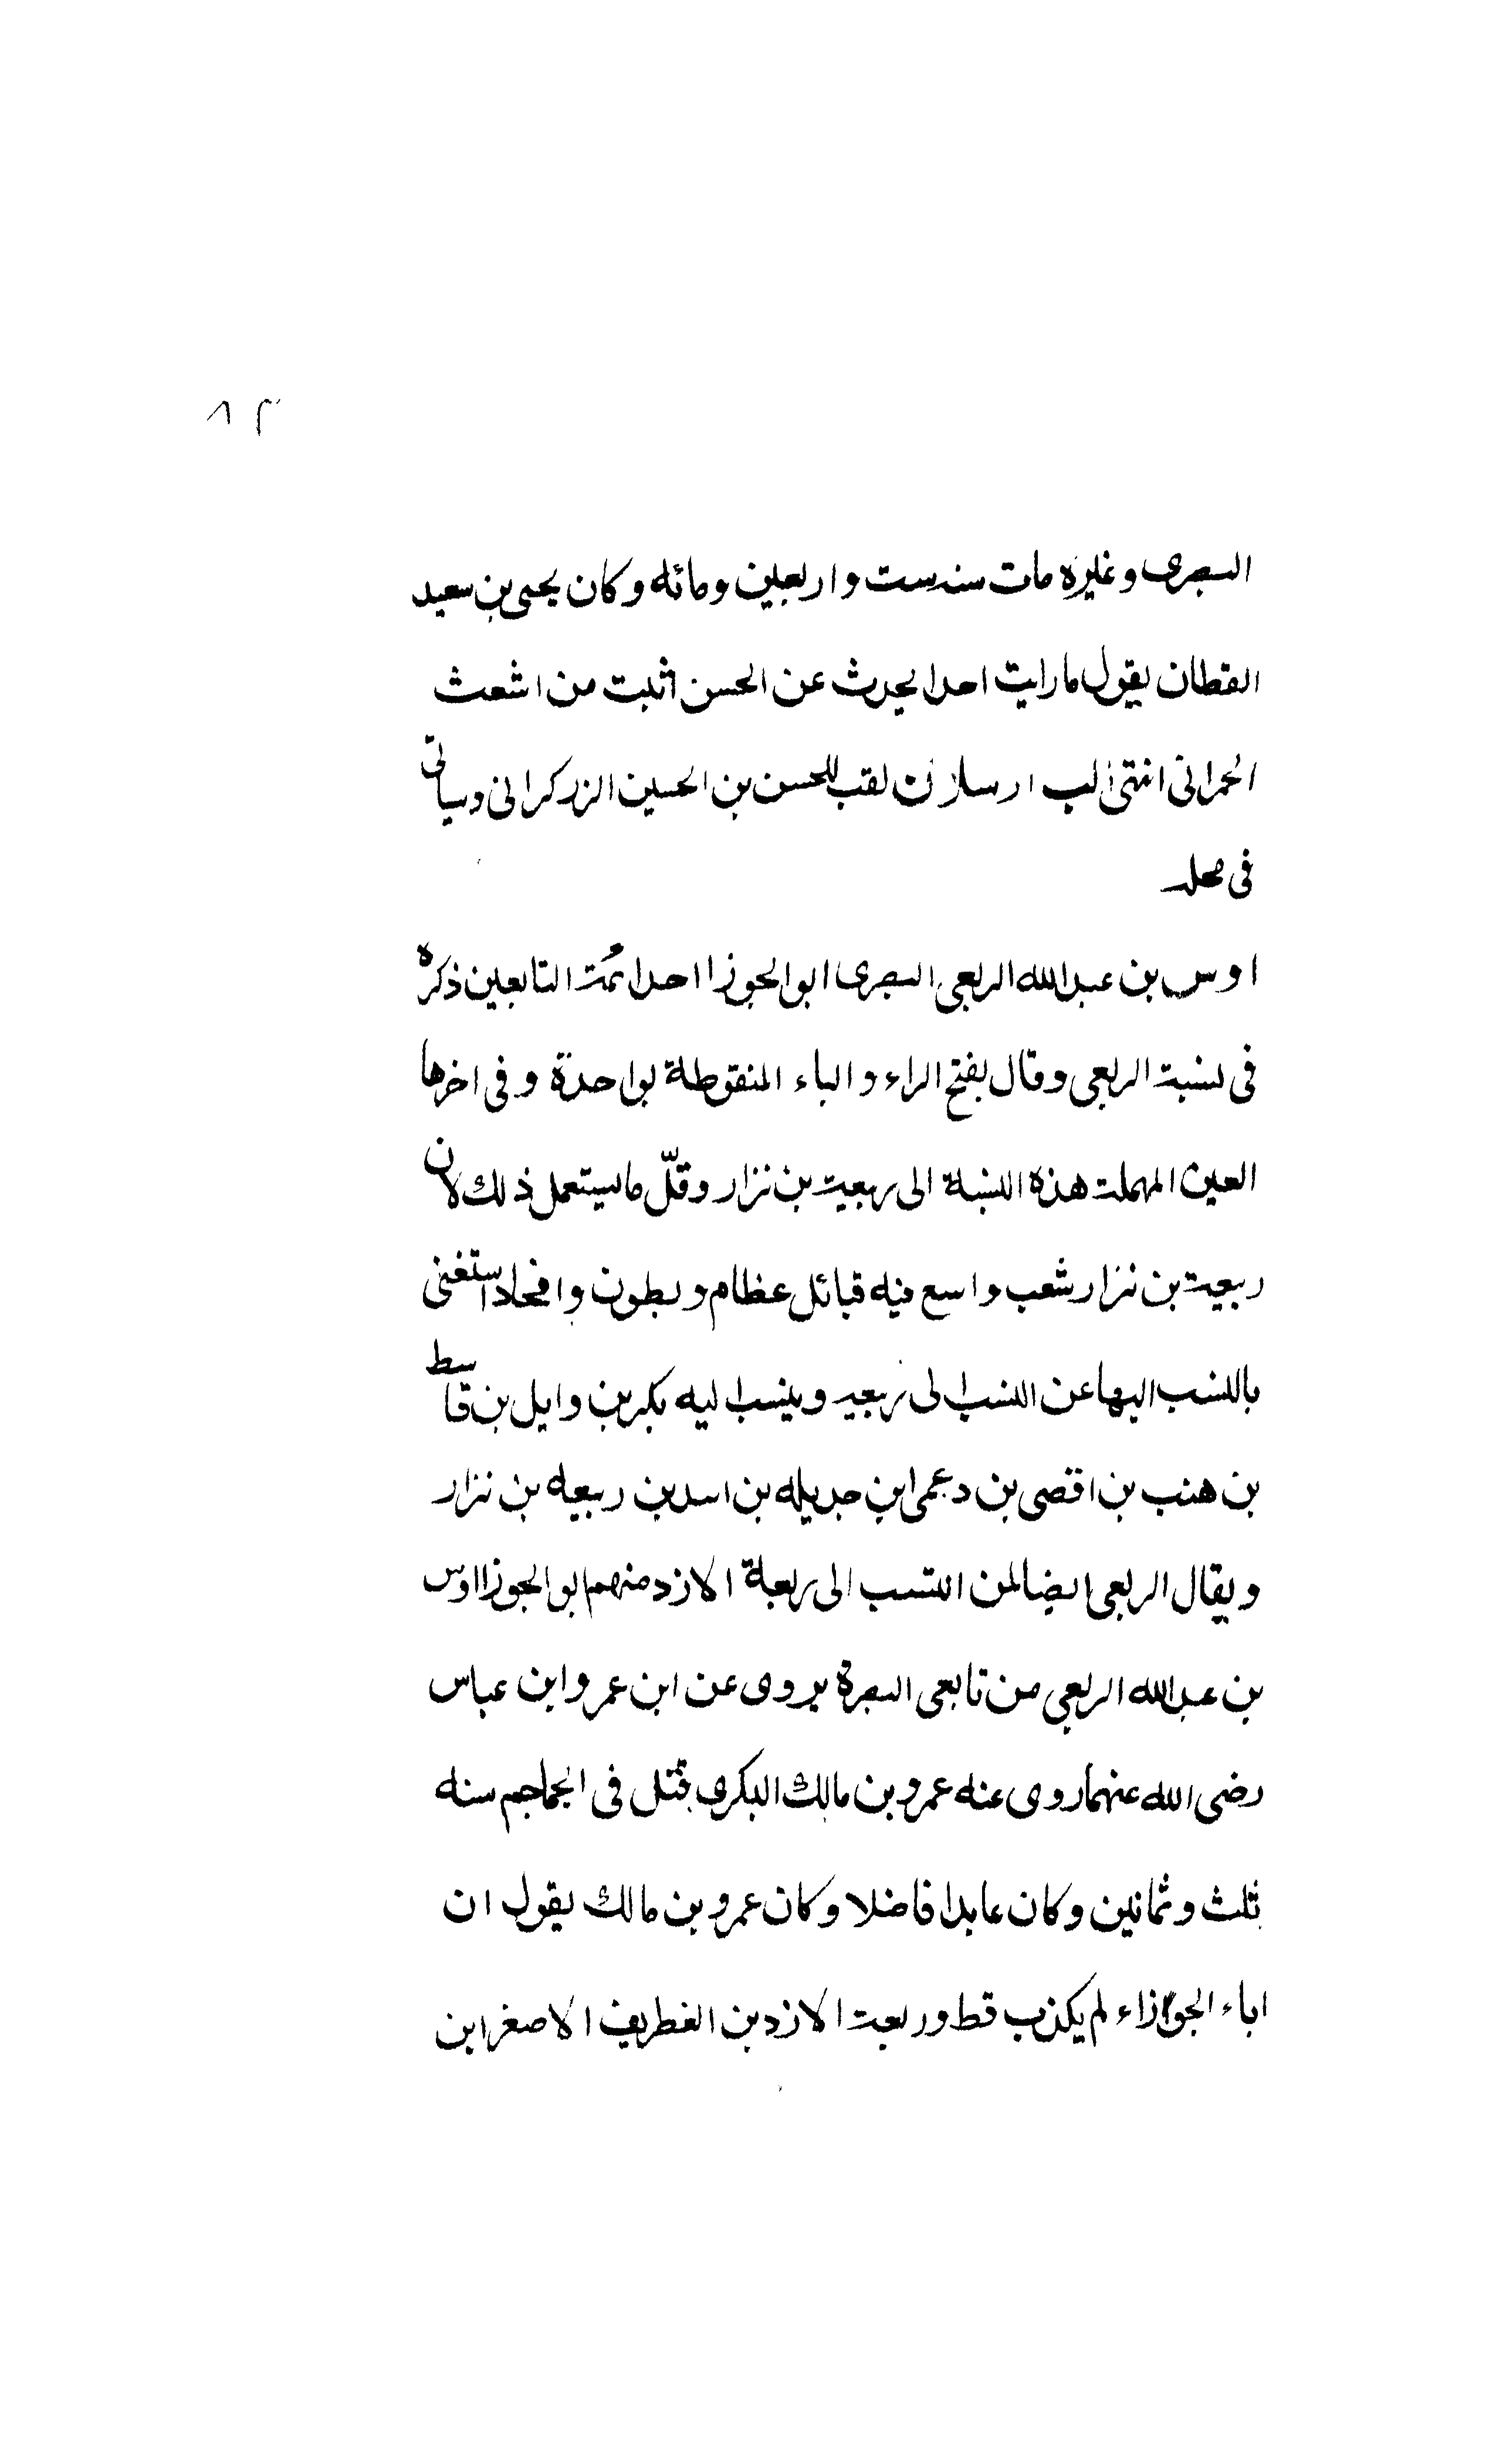 ٨٢
البصرى وغيره مات سنه ست واربعين ومائه وكان يحيى بن سعيد
القطان يقول ما رايت احدا يحدث عن الحسن اثبت من اشعث
الحمرانى انتهى الب ارسلان لقب للحسن بن الحسين الزركرانى وسياتى
فى محله
اوس بن عبد الله الربعى البصرى ابو الجوزا احد ائمة التابعين ذكره
فى نسبة الربعى وقال بفتح الراء والباء المنقوطة بواحدة وفى اخرها
العين المهملة هذه النسبة الى ربيعة بن نزار وقلّ ما يستعمل ذلك لان
ربيعة بن نزار شعب واسع فيه قبائل عظام وبطون وافخاذ استغنى
بالنسب اليها عن النسب الى ربيعه وينسب اليه بكر بن وايل بن قاسط
بن هنب بن اقصى بن دعمى ابن جديله بن اسد بن ربيعه بن نزار
ويقال الربعى ايضا لمن انتسب الى ربعة الازد منهم ابو الجوزا اوس
بن عبد الله الربعى من تابعى البصرة يروى عن ابن عمر وابن عباس
رضى الله عنهما روى عنه عمرو بن مالك البكرى قتل فى الجماجم سنه
ثلث وثمانين وكان عابدا فاضلا وكان عمرو بن مالك يقول ان
اباء الجوازاء لم يكذب قط وربعة الازد بن الغطريف الاصغر ابن